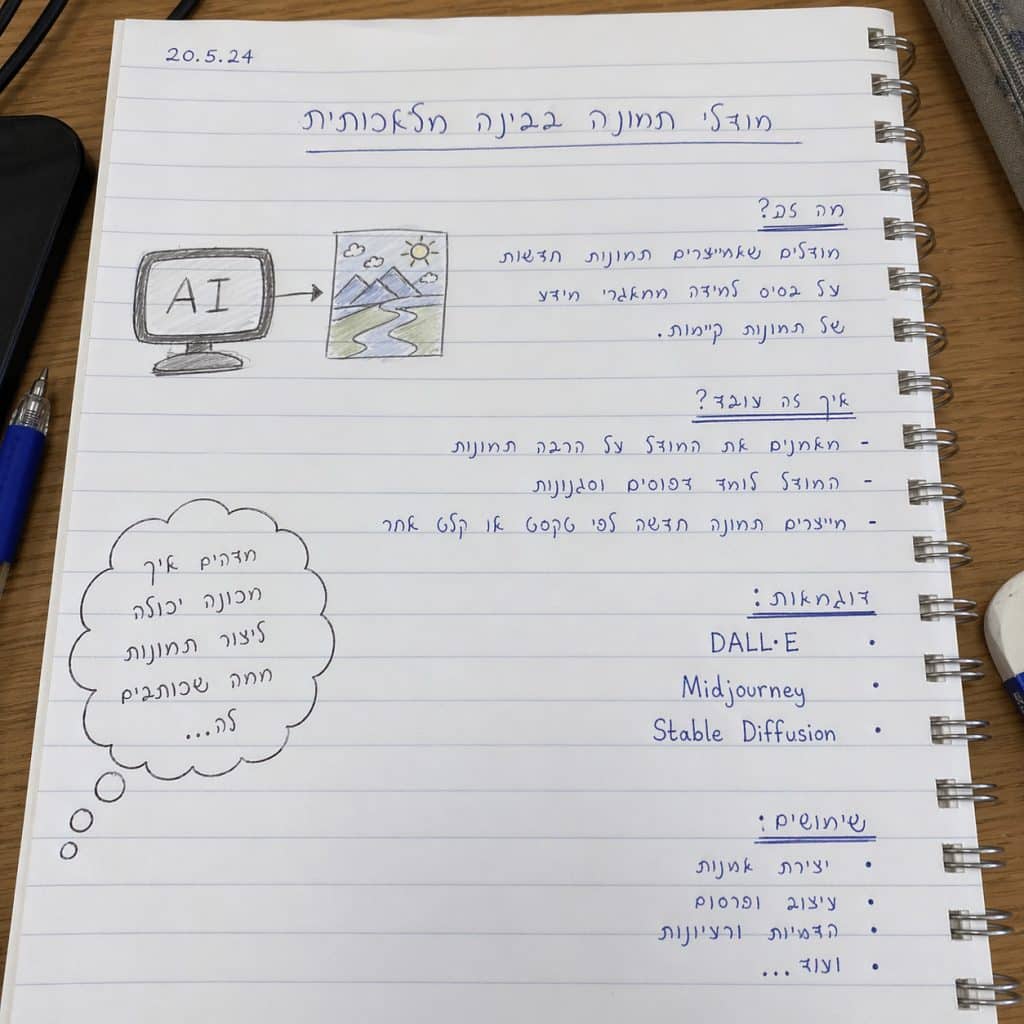 20.5.24
מודלי תמונה בבינה מלאכותית
מה זה?
מודלים שמייצרים תמונות חדשות
על בסיס למידה ממאגרי מידע
של תמונות קיימות.
AI
איך זה עובד?
- מאמנים את המודל על הרבה תמונות
- המודל לומד דפוסים וסגנונות
- מייצרים תמונה חדשה לפי טקסט או קלט אחר
מדהים איך
מכונה יכולה
ליצור תמונות
ממה שכותבים
לה...
דוגמאות:
• DALL·E
• Midjourney
• Stable Diffusion
שימושים:
• יצירת אמנות
• עיצוב ופרסום
• הדמיות ורעיונות
• ועוד...